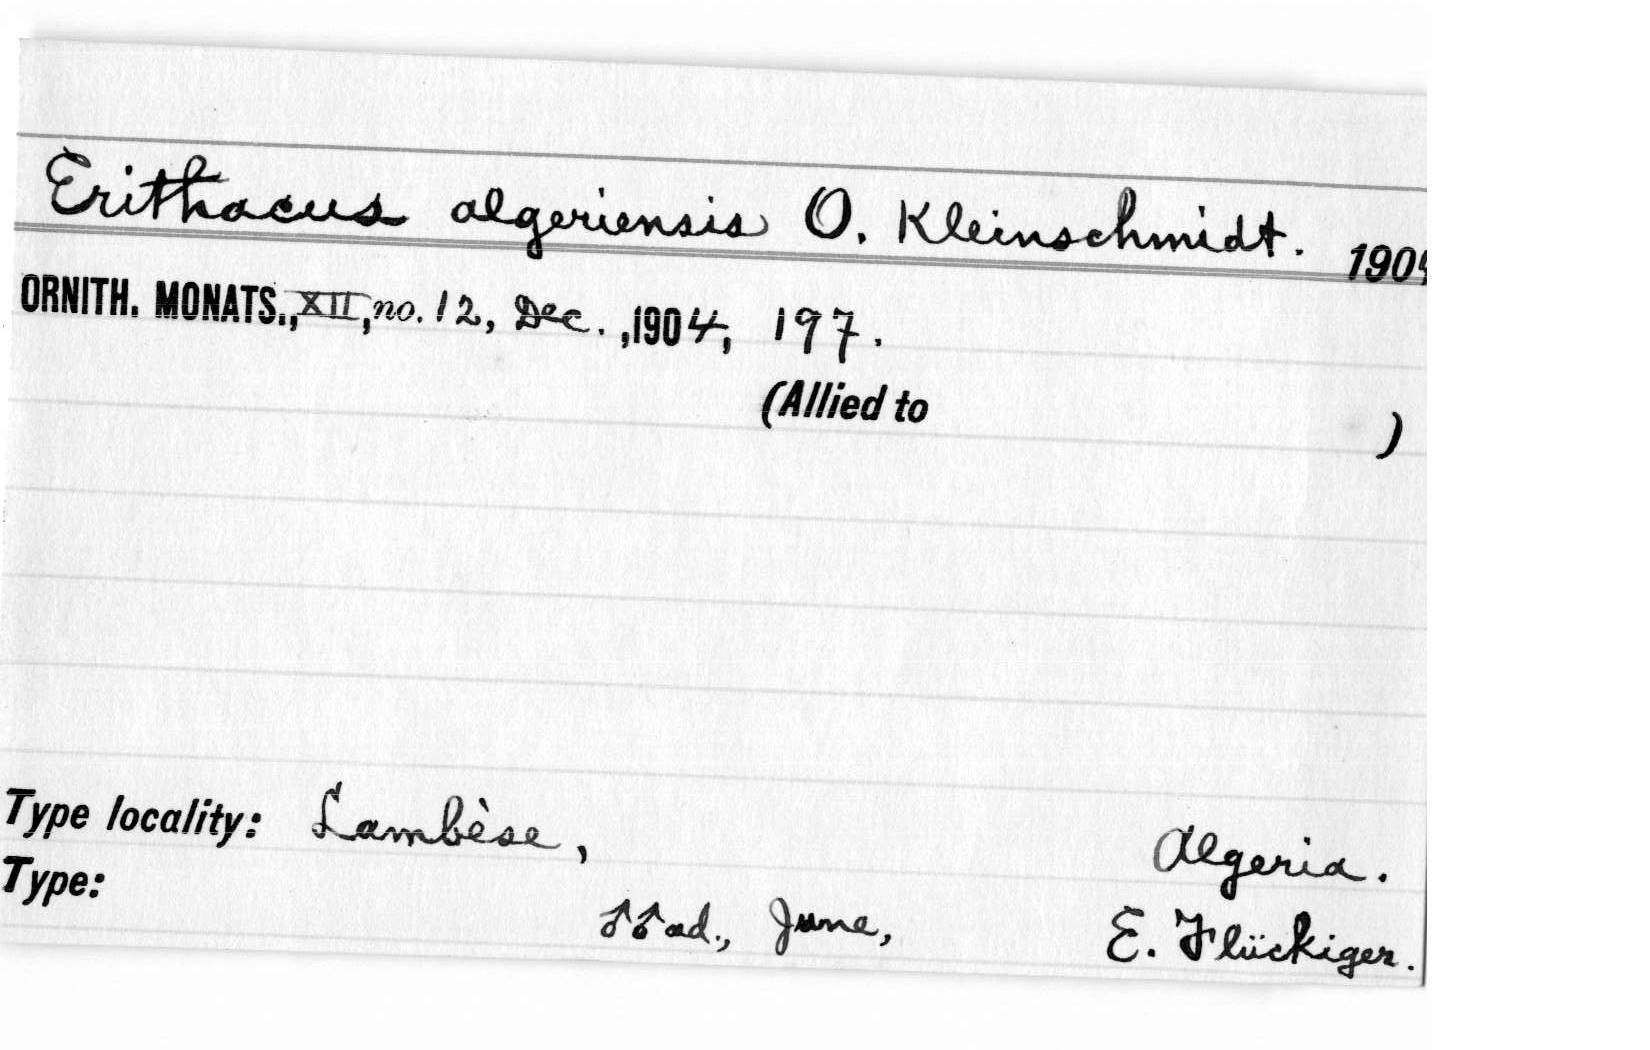 Erithacus algeriensis O. Kleinschmidt. 1904
ORNITH. MONATS., XII, no. 12, Dec. ,1904, 197.
(Allied to )
Type locality: Lambèse, Algeria.
Type:
♂♂ad., June, E. Flückiger.